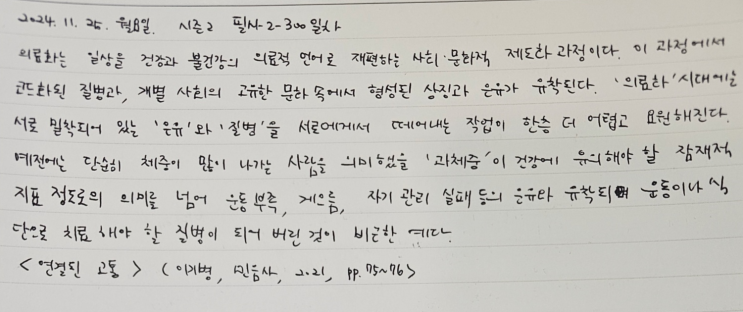 2024. 11. 25. 월요일. 시즌2 필사2-300일차
의료화는 일상을 건강과 불건강의 의료적 언어로 재편하는 사회·문화적 제도화 과정이다. 이 과정에서
코드화된 질병과, 개별 사회의 고유한 문화 속에서 형성된 상징과 은유가 유착된다. '의료화' 시대에는
서로 밀착되어 있는 '은유'와 '질병'을 서로에게서 떼어내는 작업이 한층 더 어렵고 요원해진다.
예전에는 단순히 체중이 많이 나가는 사람을 의미했을 '과체중'이 건강에 유의해야 할 잠재적
지표 정도의 의미를 넘어 운동 부족, 게으름, 자기 관리 실패 등의 은유와 유착되며 운동이나 식
단으로 치료해야 할 질병이 되어 버린 것이 비근한 예다.
<연결된 고통> (이기병, 민음사, 2021, pp.75~76>